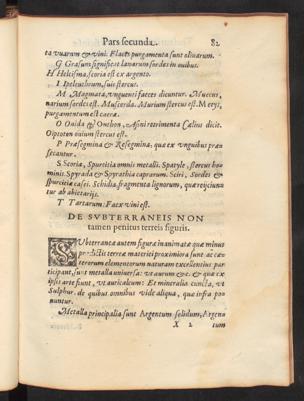 Pars secunda. 82
ta vuarum & vini. Flaces purgamenta sunt oliuarum.
G Grasum significat lanarum sordes in ouibus.
H Helcisma, scoria est ex argento.
I Ipeleuchrum, suis stercus.
M Magmata, vnguenti faeces dicuntur. Muccus,
narium sordes est. Muscerda. Murium stercus est. Meryi,
purgamentum est caerae.
O Onida & Onthon, Asini retrimenta Caelius dicit.
Oipoton ouium stercus est.
P Praesegmina & Resegmina, quae ex vnguibus prae
secantur.
S Scoria, Spurcitia omnis metalli. Spatyle, stercus ho
minis. Spyrada & Spyrathia caprarum. Scirí, Sordes &
spurcitiae casei. Schidia, fragmenta lignorum, quae reijciun
tur ab abietarijs.
T Tartarum: Faex vini est.
DE SVBTERRANEIS NON
tamen penitus terreis figuris.
SVbterraneae autem figurae inanimatae quae minus
praedictis terreae materiei proximiora sunt ac cae
terorum elementorum naturam excellentius par
ticipant, sunt metalla vniuersa: vt aurum &c. & quae ex
ipsis arte fiunt, vt auricalcum: Et mineralia cuncta, vt
Sulphur. de quibus omnibus vide aliqua, quae infra po
nuntur.
Metalla principalia sunt Argentum solidum, Argen
X 2 tum